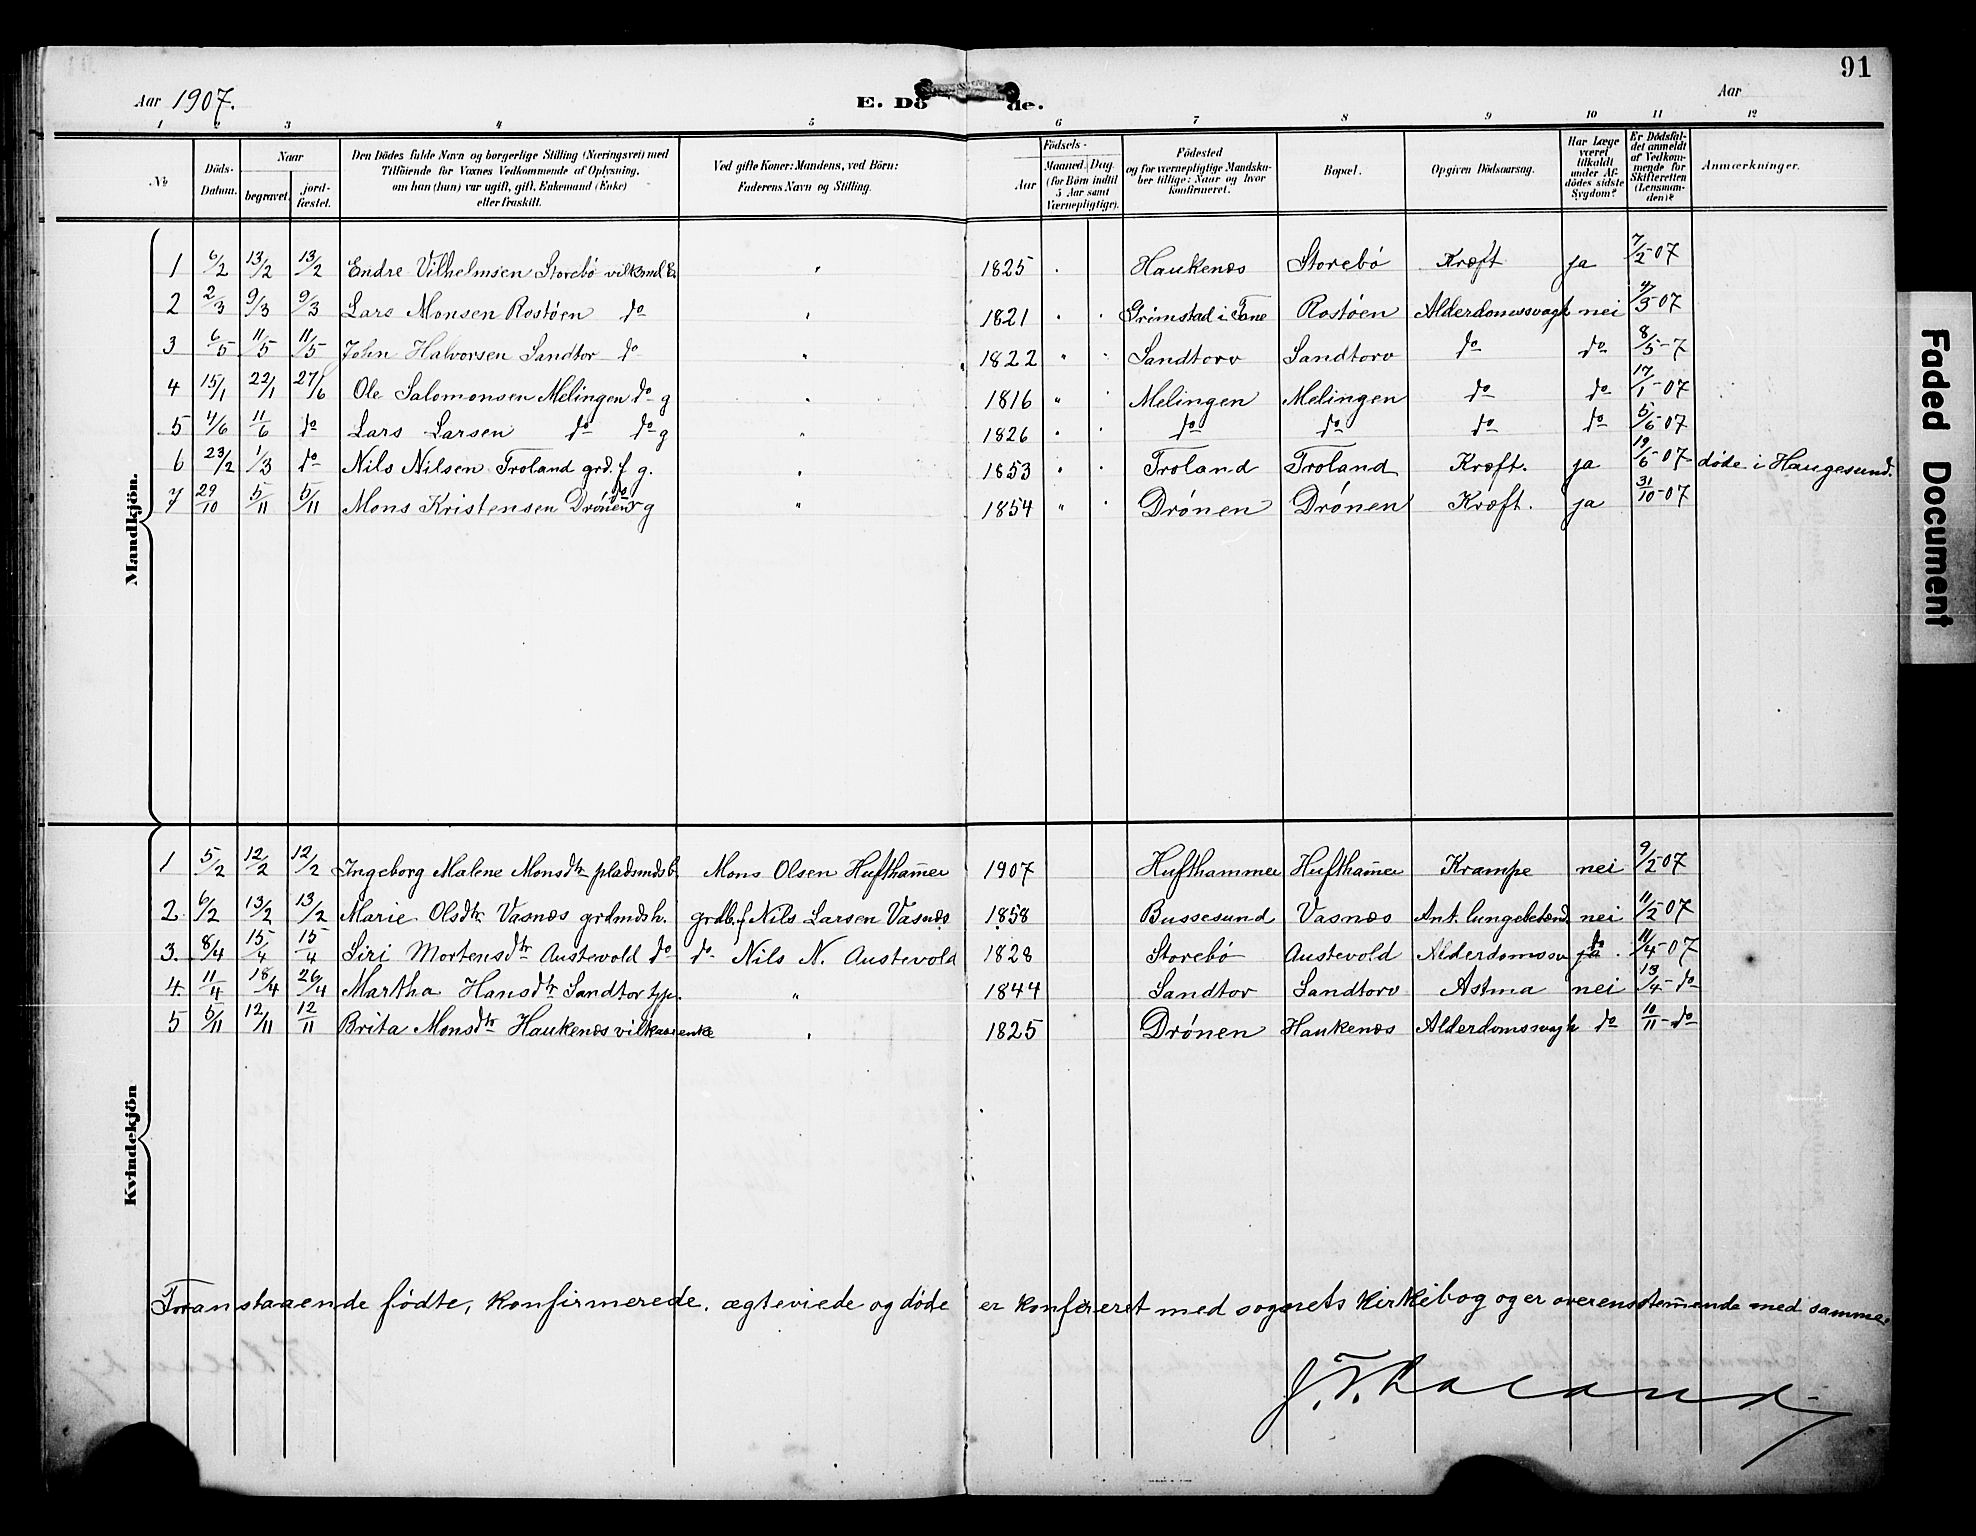 91
Aar 1907.
E. Dö de.
Aar
1 2 3 4 5 6 7 8 9 10 11 12
№ Döds-Datum. Naar begravet. jord-fæstet. Den Dödes fulde Navn og borgerlige Stilling (Næringsvei) med Tilföiende for Voxnes Vedkommende af Oplysning, om han (hun) var ugift, gift, Enkemand (Enke) eller fraskilt. Ved gifte Koner: Mandens, ved Börn: Faderens Navn og Stilling. Födsels- Aar Maaned. Dag. (for Börn indtil 5 Aar samt Værnepligtige). Födested og for værnepligtige Mandskaber tillige: Naar og hvor konfirmeret. Bopæl. Opgiven Dödsaarsag. Har Læge været tilkaldt under Afdödes sidste Sygdom? Er Dödsfaldet anmeldt af Vedkommende for Skifteretten (Lensmanden)? Anmærkninger.
Mandkjön.
1 6/2 13/2 13/2 Endre Vilhelmsen Storebø vilksmd E. " 1825 Haukenæs Storebø Kræft ja 7/2-07
2 2/3 9/3 9/3 Lars Monsen Rostøen do " 1821 Grimstad i Fane Rostøen Alderdomssvagh nei 4/3-07
3 6/5 11/5 11/5 John Halvorsen Sandtor do " 1822 Sandtorv Sandtorv do do 8/5-7
4 15/1 22/1 27/6 Ole Salomonsen Melingen do g " 1816 Melingen Melingen do do 17/1-07
5 4/6 11/6 do Lars Larsen do do g " 1826 do do do do 5/6-07
6 23/2 1/3 do Nils Nilsen Troland grd. f g. " 1853 Troland Troland Kræft. ja 19/6-07 døde i Haugesund.
7 29/10 5/11 5/11 Mons Kristensen Drønen do g " 1854 Drønen Drønen Kræft. ja 31/10-07
Kvindekjön
1 5/2 12/2 12/2 Ingeborg Malene Monsdtr pladsmdsb. Mons Olsen Hufthamer 1907 Hufthammer Hufthamer Krampe nei 9/2-07
2. 6/2 13/2 13/2 Marie Olsdtr Vasnæs grdmdsh. grdb. f Nils Larsen Vasnæs 1858 Bussesund Vasnæs Ant. lungebetænd. nei 11/2-07
3. 8/4 15/4 15/4 Siri Mortensdtr Austevold do do Nils N. Austevold 1828 Storebø Austevold Alderdomssv do 11/4-07
4. 11/4 18/4 26/4 Martha Hansdtr Sandtor " 1844 Sandtor Sandtorv Astma nei 13/4-do
5 5/11 12/11 12/11 Brita Monsdtr Haukenæs vilkaarenke " 1825 Drønen Haukenæs Alderdomssvagh do 10/11-do
Foranstaaende fødte, konfirmerede, ægteviede og døde er konfereret med sognets kirkebog og er overensstemende med samme
Faded Document